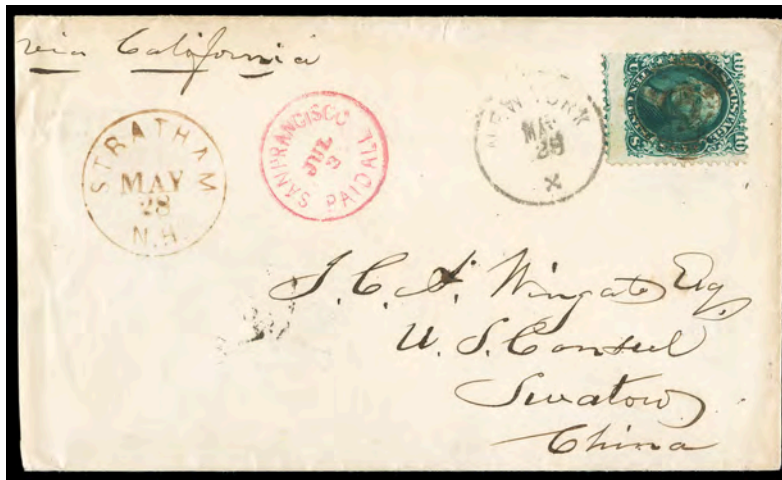 via California
STRATHAM
MAY
28
N.H.
SAN FRANCISCO
JUL
3
PAID ALL
NEW YORK
MAY
29
J. C. A. Wingate Esq.
U. S. Consul
Swatow
China